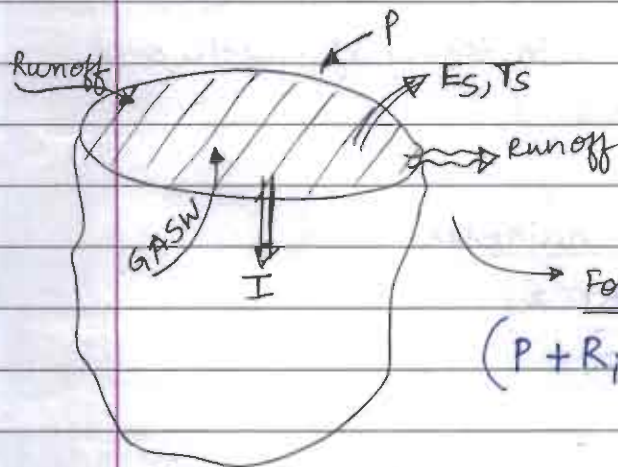 P
Runoff
Es, Ts
Runoff
GASW
I
Fo
(P + R